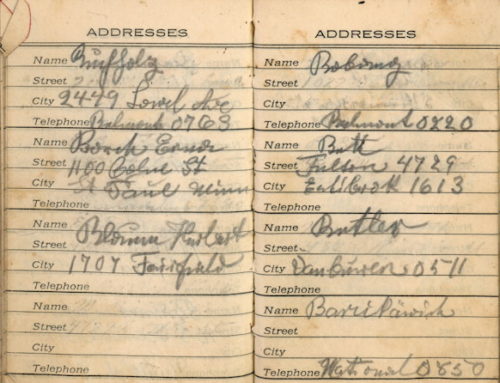 ADDRESSES
Name Buchholz
Street
City 2449 Lowel Ave
Telephone Belmont 0763
Name Borch Erna
Street 1100 St
City St Paul Minn
Telephone
Name Herbert
Street
City 1707 Fairfield
Telephone
Name
Street
City
Telephone
ADDRESSES
Name
Street
City
Telephone Belmont 0220
Name Butt
Street Fulton 4729
City 1613
Telephone
Name Butler
Street
City Van Buren 0511
Telephone
Name
Street
City
Telephone National 0850